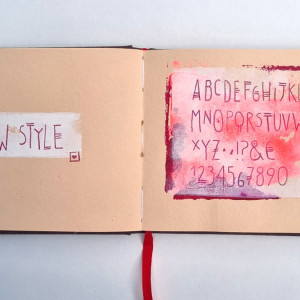 W STYLE
ABCDEFGHIJKL
MNOPQRSTUVW
XYZ..!?&E
1234567890